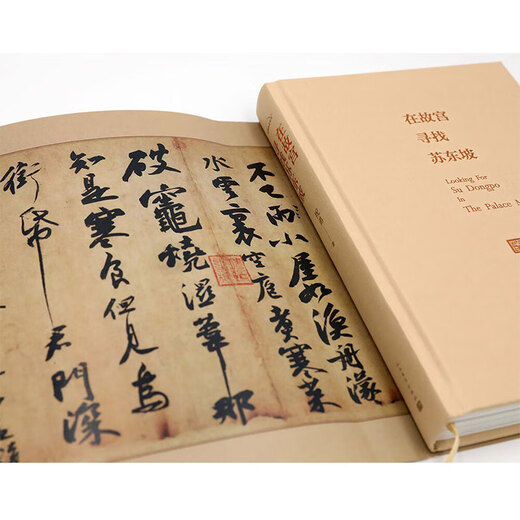 在故宫
寻找
苏东坡
Looking For
Su Dongpo
In
The Palace
不已雨小屋如漁舟濛
水雲裏空庖煮寒菜
破竈燒濕葦那
知是寒食但見烏
銜帋君門深